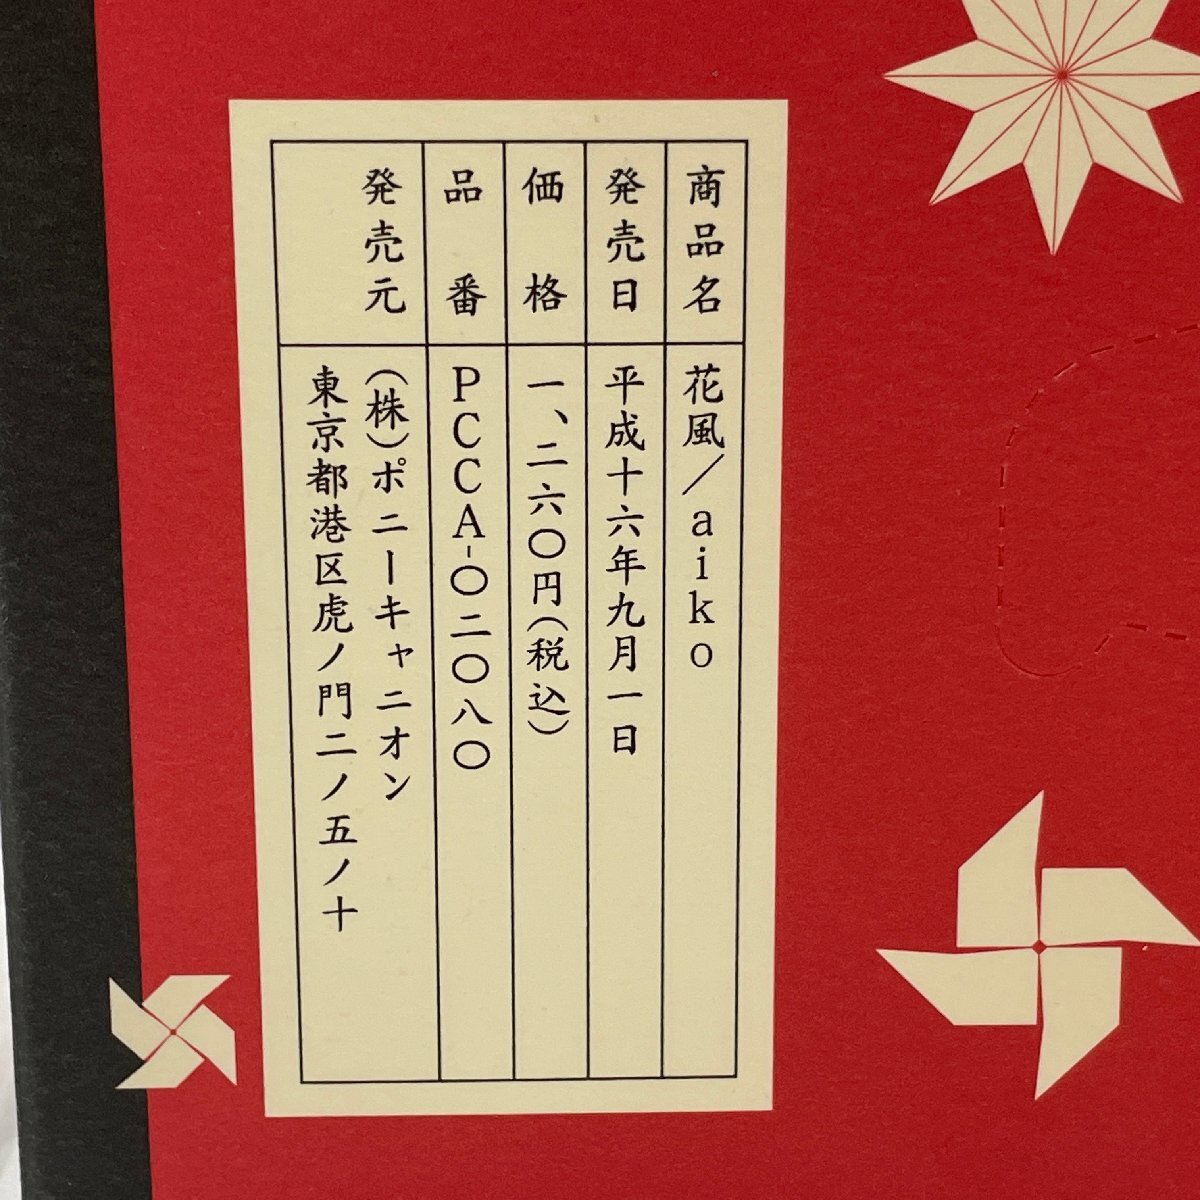 商品名 花風／aiko
発売日 平成十六年九月一日
価格 一、二六〇円(税込)
品番 PCCA-〇二〇八〇
発売元 (株)ポニーキャニオン
東京都港区虎ノ門二ノ五ノ十